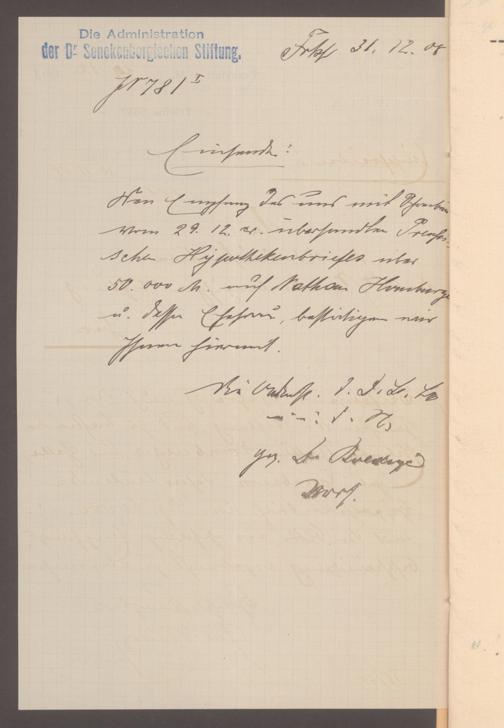 Die Administration
der Dr Senckenbergischen Stiftung.
Frkf 31. 12. 08
№ 781 I
Einschreiben!
Den Empfang des uns mit Schreiben
vom 29. 12. cr. übersandten Preussi
schen Hypothekenbriefes über
50.000 M. auf Nathan Homburger
u. dessen Ehefrau, bestätigen wir
Ihnen hiermit.
Die Administr. d. D. S. St.
i. A.
gez. Dr
Vors.